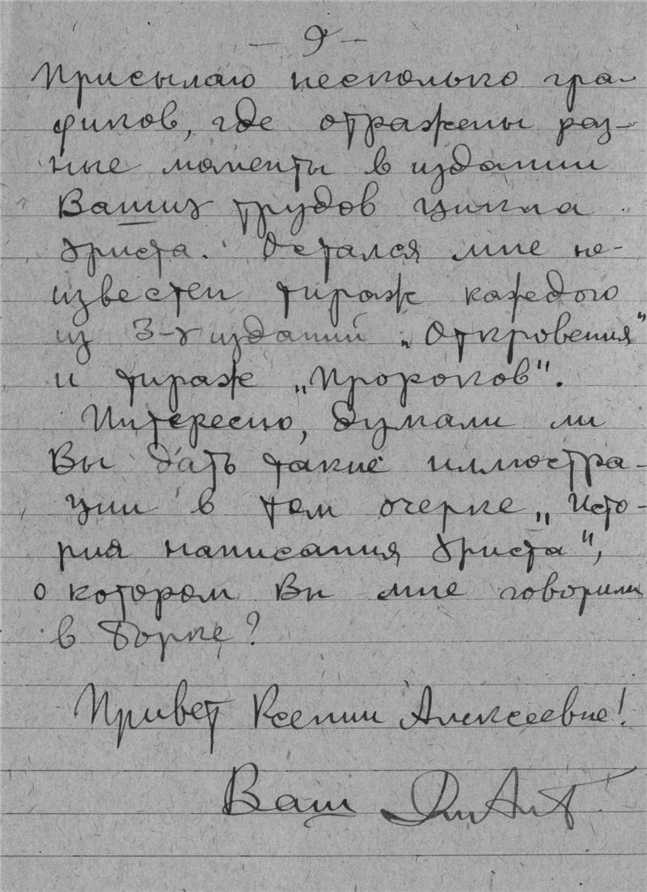 — 9 —
Присылаю несколько гра-
фиков, где отражены раз-
ные моменты в издании
Ваших трудов цикла
Христа. Остался мне не-
известен тираж каждого
из 3-х изданий „Откровения"
и тираж „Пророков".
Интересно, думали ли
Вы дать такие иллюстра-
ции в том очерке „Исто-
рия написания Христа",
о котором Вы мне говорили
в Борке?
Привет Ксении Алексеевне!
Ваш